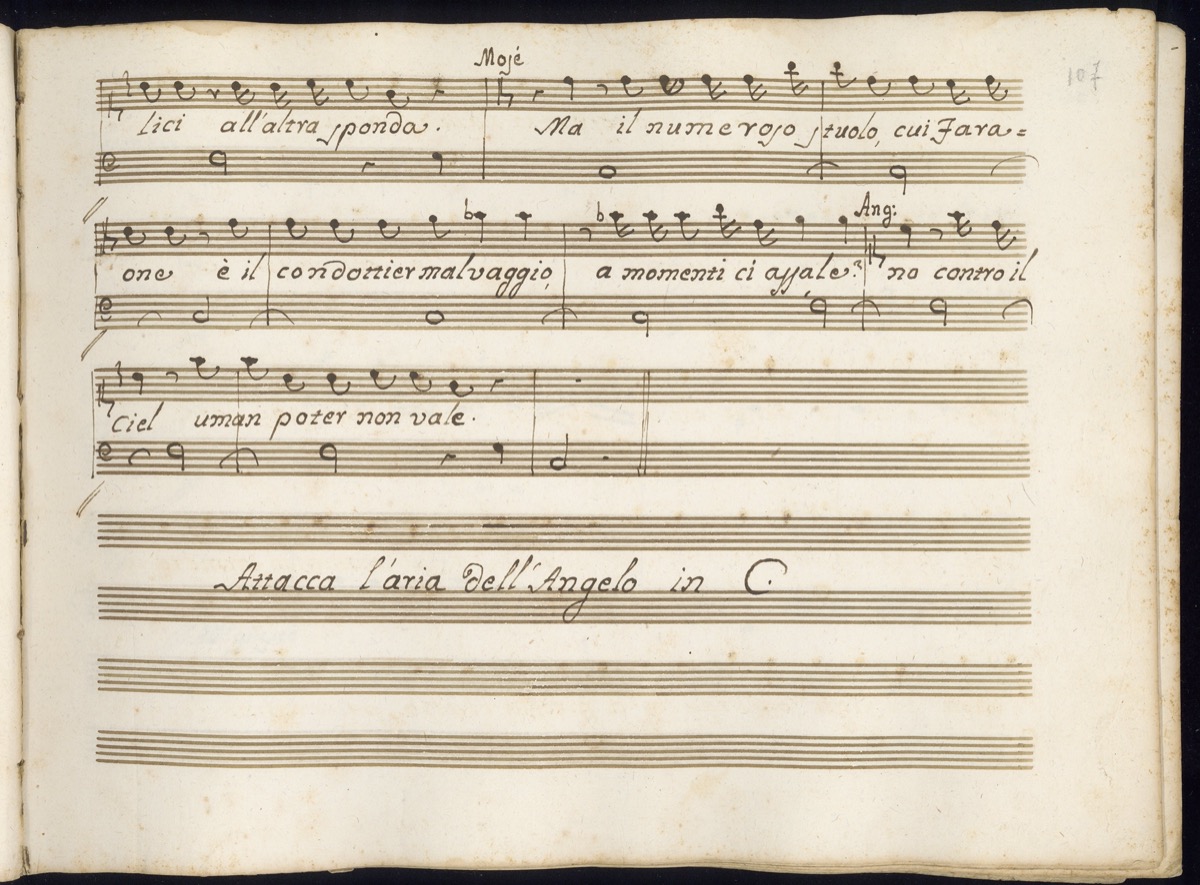 107
Mosé
lici all'altra sponda. Ma il numeroso stuolo, cui Fara=
Ang:
one è il condottier malvaggio, a momenti ci assale? no contro il
Ciel uman poter non vale.
Attacca l'aria dell'Angelo in C.